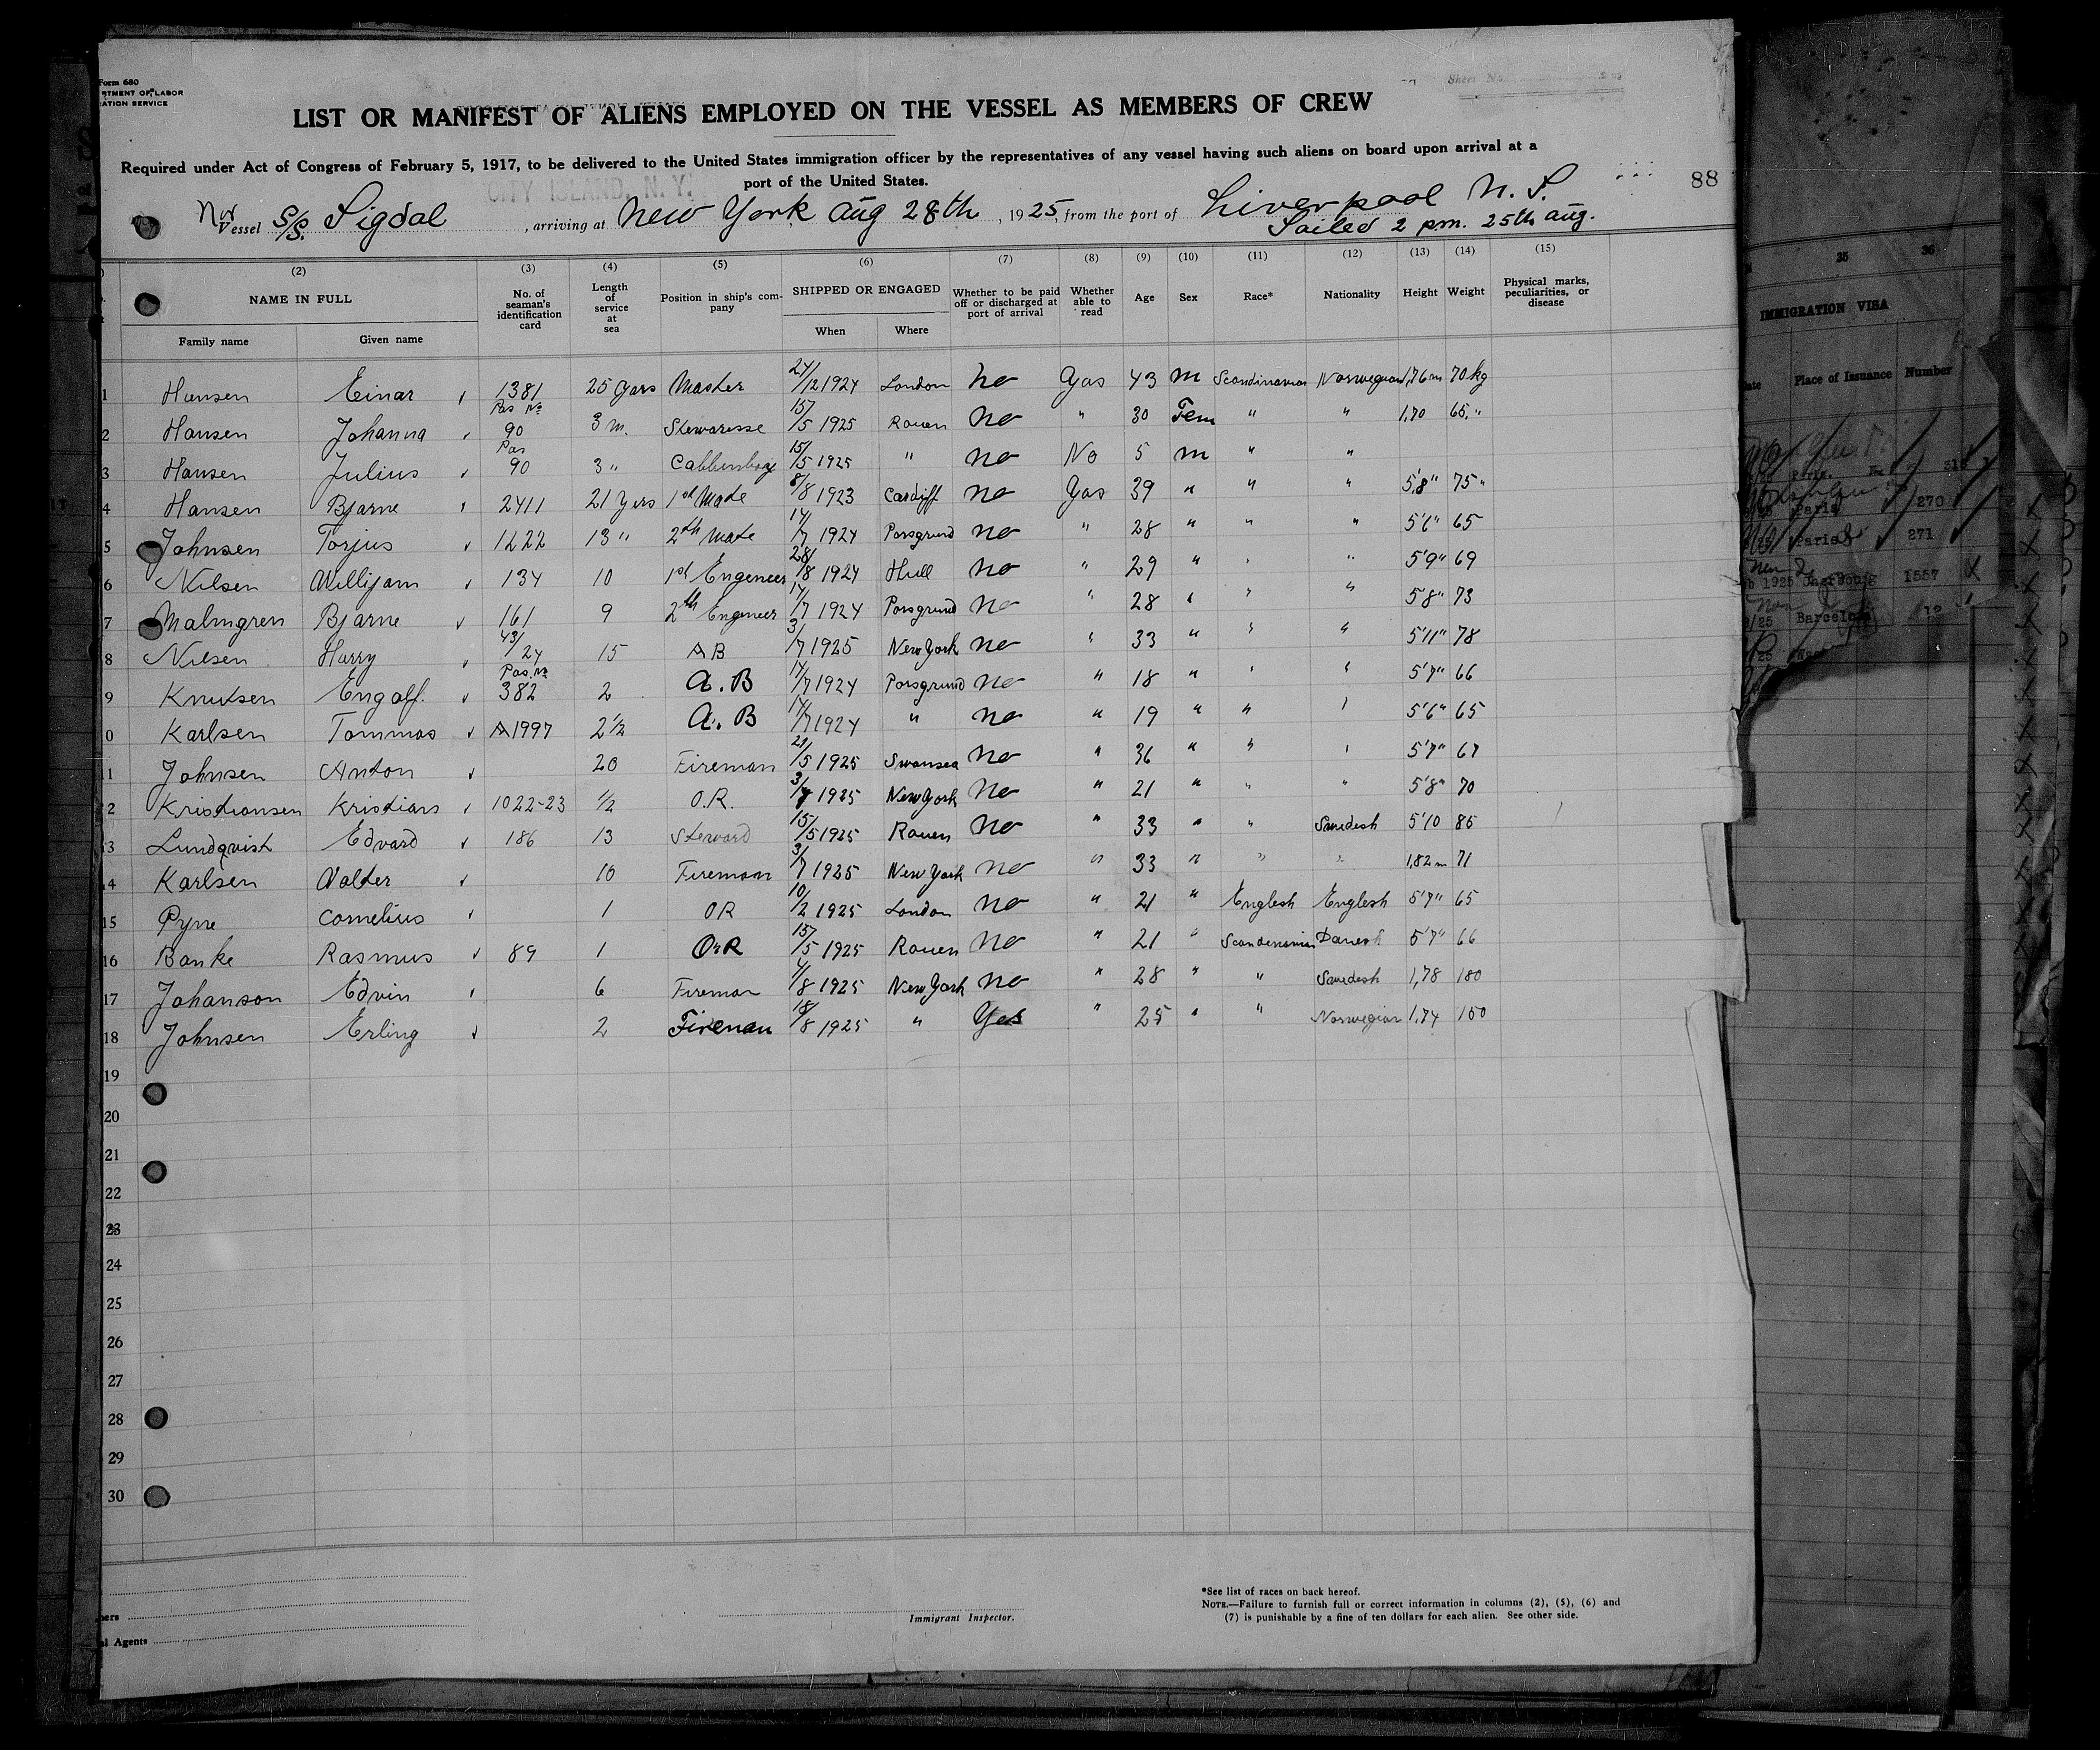 Form 680
RTMENT OF LABOR
RATION SERVICE
LIST OR MANIFEST OF ALIENS EMPLOYED ON THE VESSEL AS MEMBERS OF CREW
Required under Act of Congress of February 5, 1917, to be delivered to the United States immigration officer by the representatives of any vessel having such aliens on board upon arrival at a
port of the United States.
CITY ISLAND, N. Y.
88
Nor Vessel S/S. Sigdal, arriving at New York Aug 28th, 1925, from the port of Liverpool N. S.
Sailed 2 pm. 25th Aug.
(2) (3) (4) (5) (6) (7) (8) (9) (10) (11) (12) (13) (14) (15)
NAME IN FULL No. of seaman's identification card Length of service at sea Position in ship's company SHIPPED OR ENGAGED Whether to be paid off or discharged at port of arrival Whether able to read Age Sex Race* Nationality Height Weight Physical marks, peculiarities, or disease
Family name Given name When Where
1 Hansen Einar 1381 25 Yars Master 24/12 1924 London no Yas 43 m Scandinavian Norwegian 1,76 m 70 kg
2 Hansen Johanna Pas No 90 3 m. Stewaresse 15/5 1925 Rouen no " 30 Fem " " 1,70 65 "
3 Hansen Julius Pas 90 3 " 15/5 1925 " no No 5 m " "
4 Hansen Bjarne 2411 21 Yers 1st Mate 8/8 1923 Cardiff no Yas 39 " " " 5'8" 75 "
5 Johnsen Torjus 1222 13 " 2th Mate 14/7 1924 Porsgrund no " 28 " " " 5'6" 65
6 Nilsen Willijam 134 10 1st Engeneer 28/8 1924 Hull no " 29 " " " 5'9" 69
7 Malmgren Bjarne 161 9 2th Engeneer 14/7 1924 Porsgrund no " 28 " " " 5'8" 73
8 Nilsen Harry 43/24 15 AB 3/7 1925 New York no " 33 " " " 5'11" 78
9 Knutsen Engolf. Pas. No 382 2 A. B 14/7 1924 Porsgrund no " 18 " " " 5'7" 66
0 Karlsen Tommas A1997 2 1/2 A. B 14/7 1924 " no " 19 " " " 5'6" 65
11 Johnsen Anton 20 Fireman 21/5 1925 Swansea no " 36 " " " 5'7" 67
12 Kristiansen Kristians 1022-23 1/2 O.R. 3/7 1925 New York no " 21 " " " 5'8" 70
13 Lundqvist Edvard 186 13 Steward 15/5 1925 Rouen no " 33 " " Swedesh 5'10 85
14 Karlsen Valter 10 Fireman 3/7 1925 New York no " 33 " " " 1,82 m 71
15 Pyne Cornelius 1 OR 10/2 1925 London no " 21 " Englesh Englesh 5'7" 65
16 Banke Rasmus 89 1 O.R 15/5 1925 Rouen no " 21 " Scandinavian Danesh 5'7" 66
17 Johanson Edvin 6 Fireman 4/8 1925 New York no " 28 " " Swedesh 1,78 180
18 Johnsen Erling 2 Fireman 18/8 1925 " Yes " 25 " " Norwegian 1.74 150
19
20
21
22
23
24
25
26
27
28
29
30
Immigrant Inspector.
al Agents
*See list of races on back hereof.
NOTE.—Failure to furnish full or correct information in columns (2), (5), (6) and
(7) is punishable by a fine of ten dollars for each alien. See other side.
25 36
IMMIGRATION VISA
Place of Issuance Number
Paris
Paris 270
Paris 271
1925 Cherbourg 1557
Barcelona 12